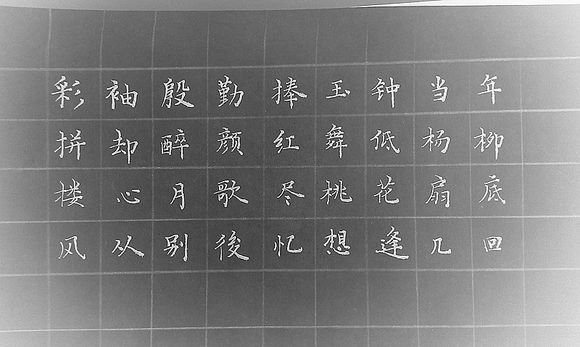 彩袖殷勤捧玉钟当年
拼却醉颜红舞低杨柳
楼心月歌尽桃花扇底
风从别後忆想逢几回